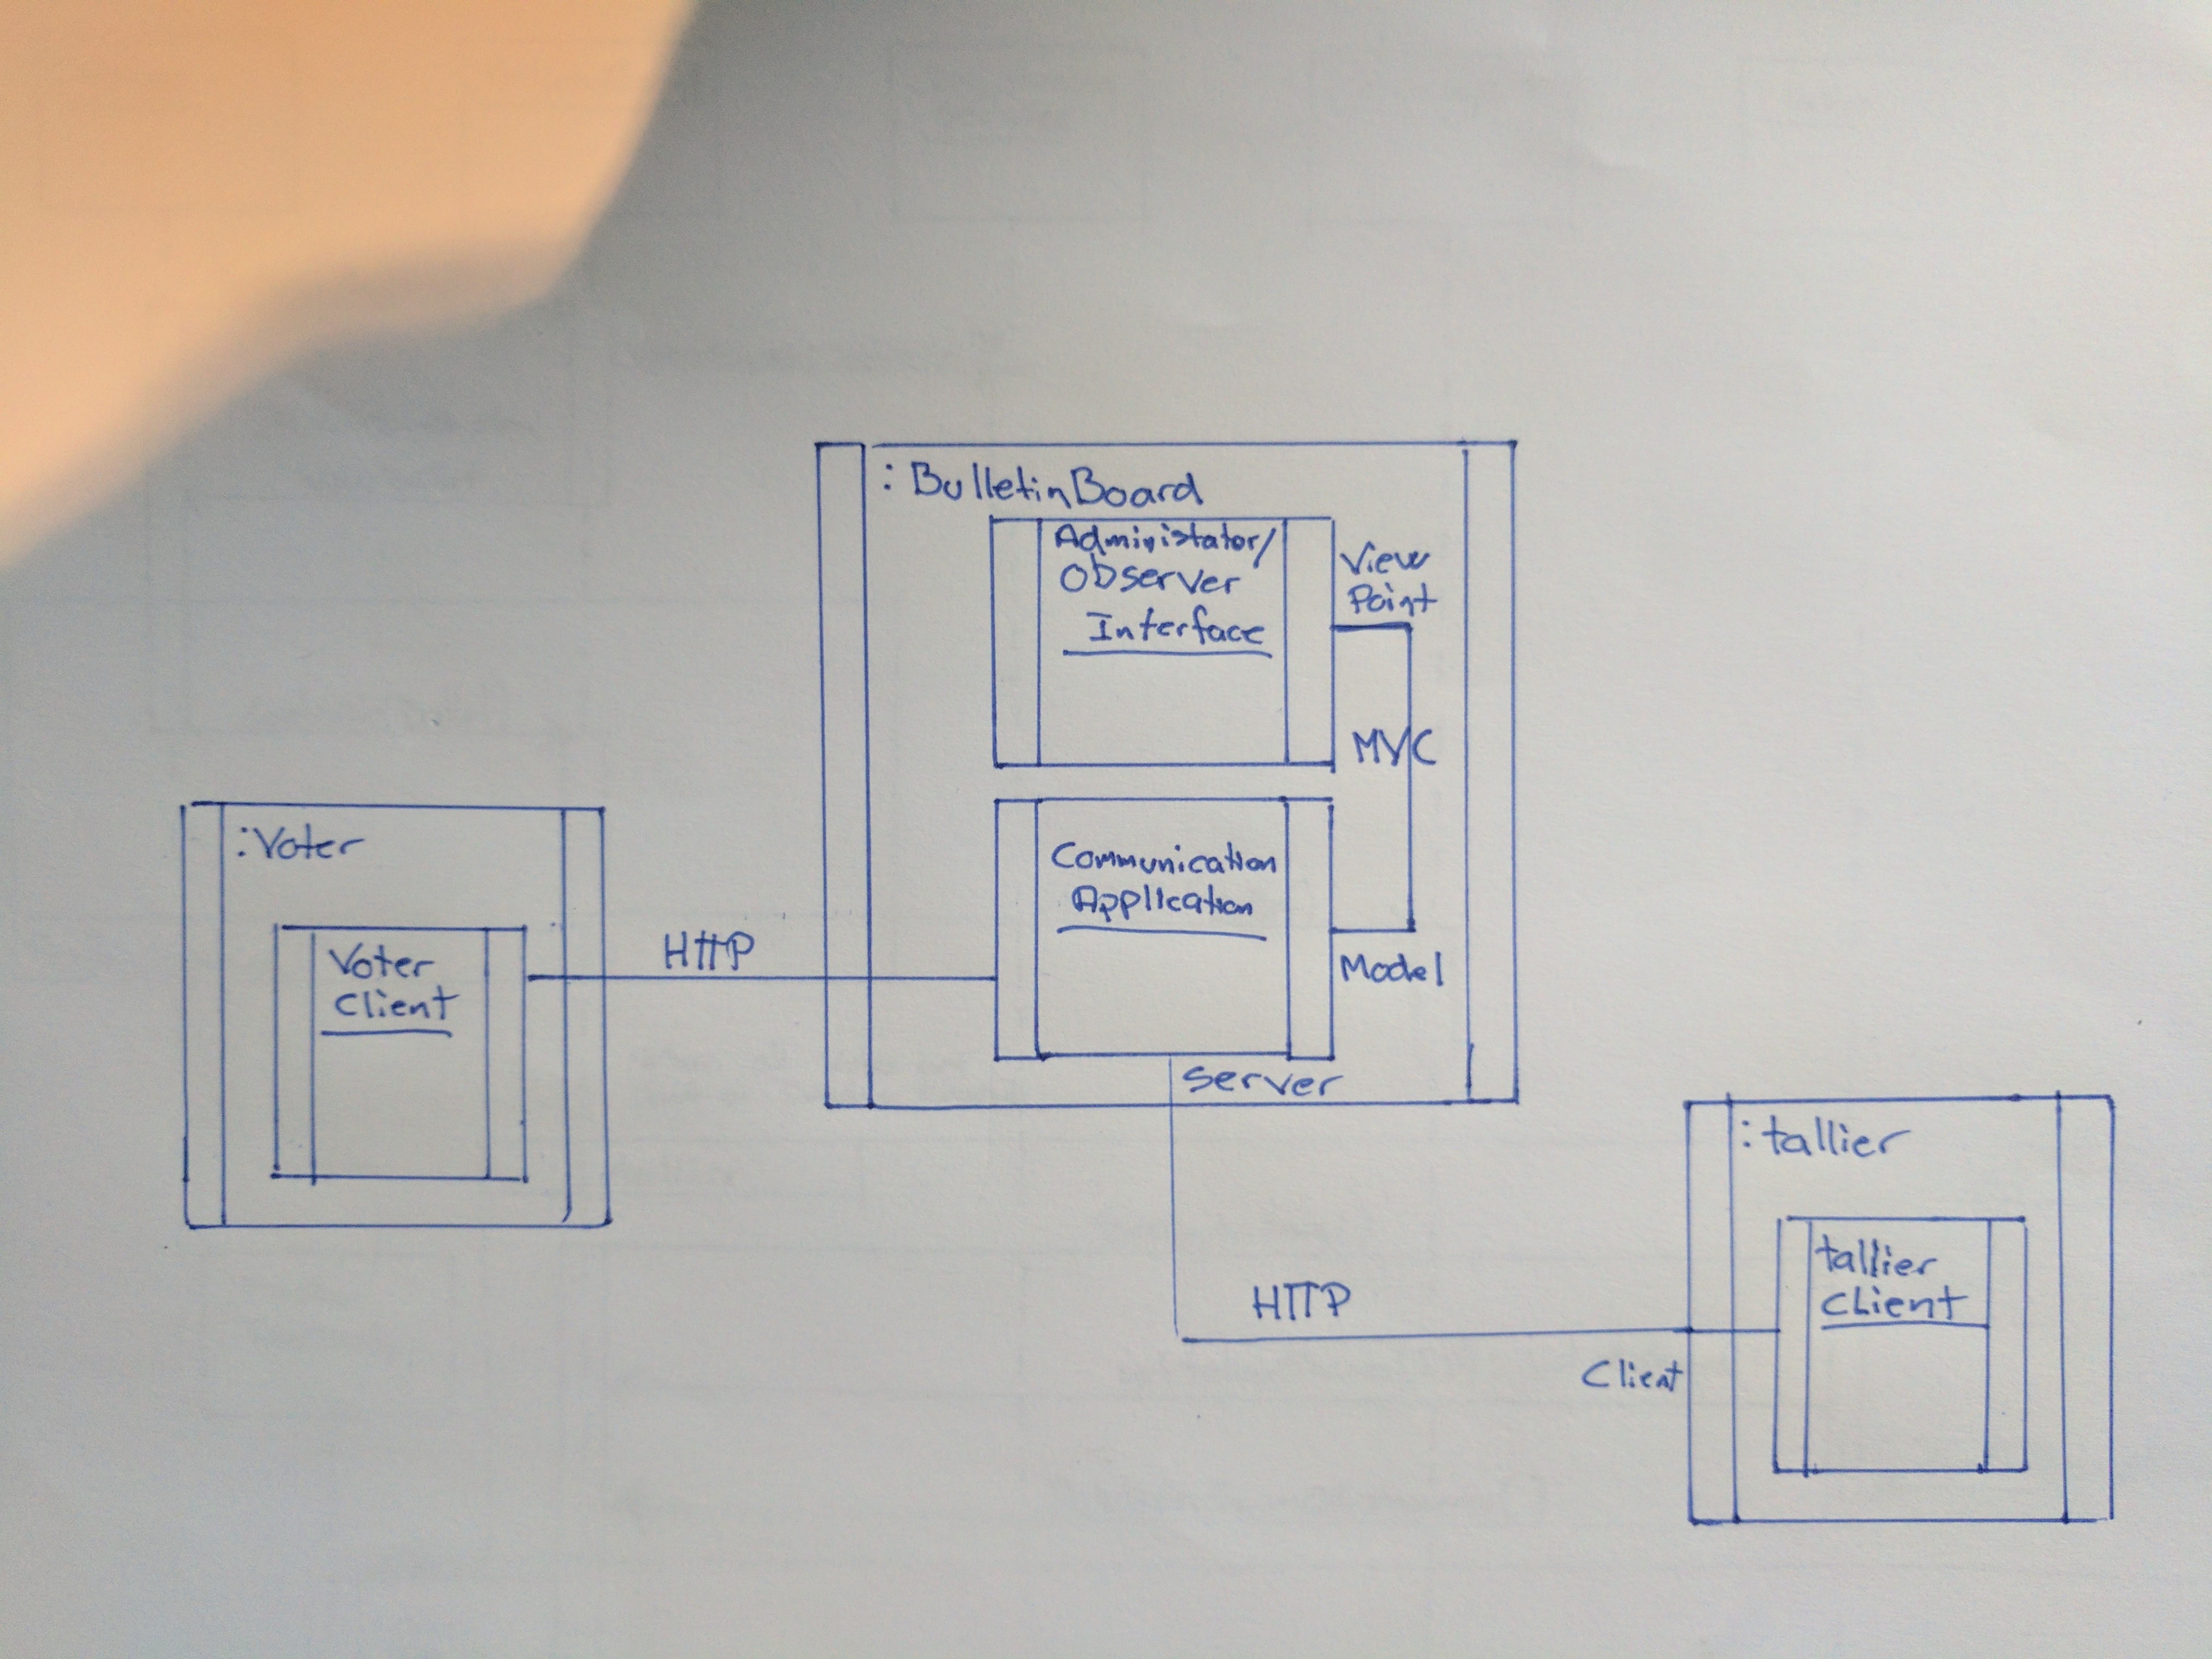 :BulletinBoard
Administator/
Observer
Interface
View
Point
MVC
Communication
Application
Model
server
:Voter
Voter
Client
HTTP
HTTP
Client
:tallier
tallier
Client